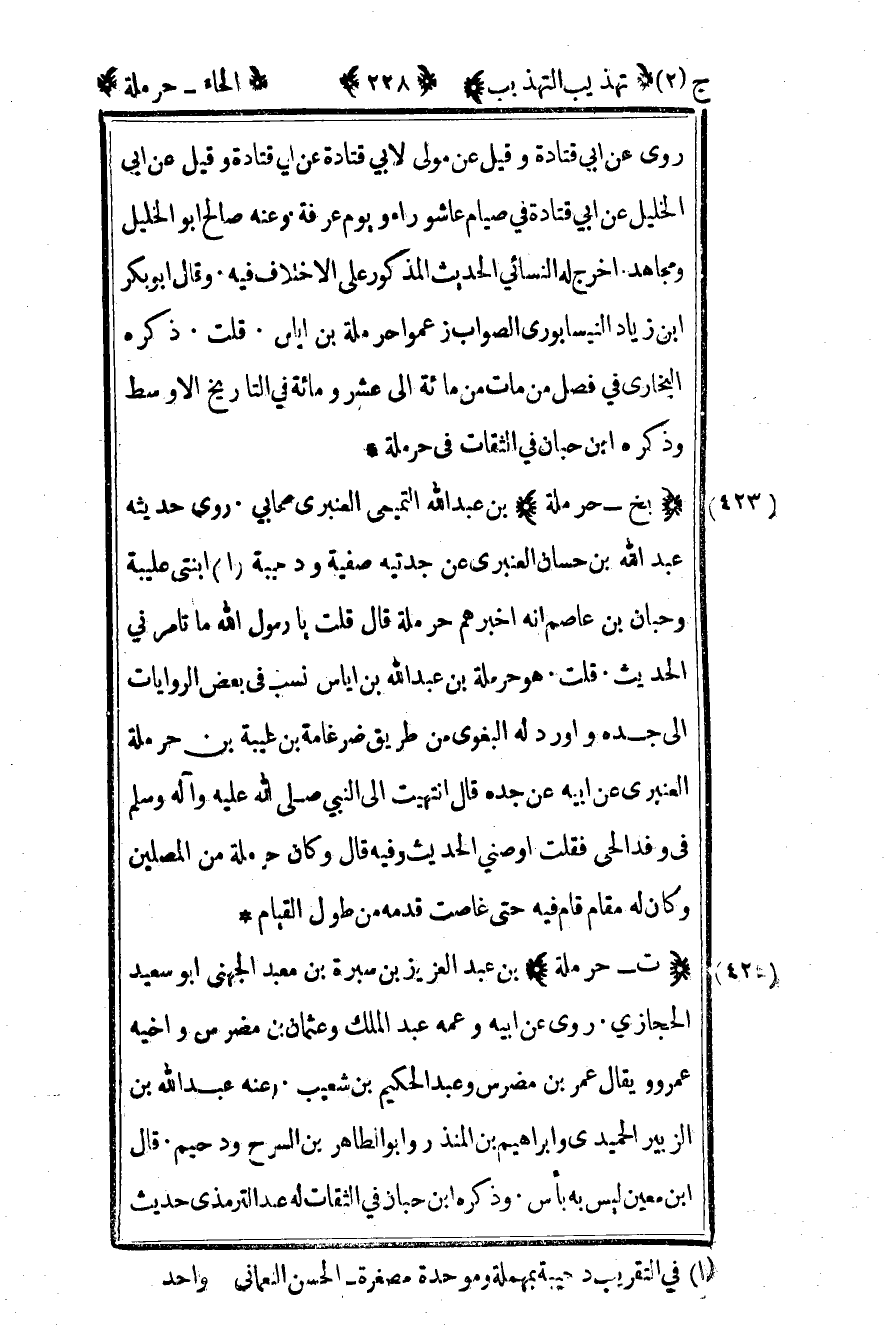 ج (٢) ﴿ تهذيب التهذيب ﴾ ﴿ ٢٢٨ ﴾ ﴿ الحاء ـ حرملة ﴾
روى عن ابي قتادة و قيل عن مولى لابي قتادة عن ابي قتادة و قيل عن ابي
الخليل عن ابي قتادة في صيام عاشوراء و يوم عرفة · وعنه صالح ابو الخليل
ومجاهد · اخرج له النسائي الحديث المذكور على الاختلاف فيه · وقال ابو بكر
ابن زياد النيسابورى الصواب زعموا حرملة بن اياس · قلت · ذكره
البخارى في فصل من مات من مائة الى عشر و مائة في التاريخ الاوسط
وذكره ابن حبان في الثقات فى حرملة *
(٤٢٣) ﴿ بخ ـ حرملة ﴾ بن عبدالله التميمى العنبرى صحابي · روى حديثه
عبد الله بن حسان العنبرى عن جدتيه صفية و دحيبة (١) ابنتى عليبة
وحبان بن عاصم انه اخبرهم حرملة قال قلت يا رسول الله ما تامرني
الحديث · قلت · هو حرملة بن عبدالله بن اياس نسب فى بعض الروايات
الى جده و اورد له البغوى من طريق ضرغامة بن عليبة بن حرملة
العنبرى عن ابيه عن جده قال انتهيت الى النبي صلى الله عليه وآله وسلم
فى وفد الحى فقلت اوصني الحديث وفيه قال وكان حرملة من المصلين
وكان له مقام قام فيه حتى غاصت قدمه من طول القيام *
(٤٢٤) ﴿ ت ـ حرملة ﴾ بن عبد العزيز بن سبرة بن معبد الجهنى ابو سعيد
الحجازي · روى عن ابيه و عمه عبد الملك وعثمان بن مضرس و اخيه
عمرو و يقال عمر بن مضرس وعبدالحكيم بن شعيب · وعنه عبدالله بن
الزبير الحميدى وابراهيم بن المنذر وابو الطاهر بن السرح ودحيم · قال
ابن معين ليس به بأس · وذكره ابن حبان في الثقات له عند الترمذى حديث
(١) في التقريب دحيبة بمهملة وموحدة مصغرة ـ الحسن النعمانى واحد